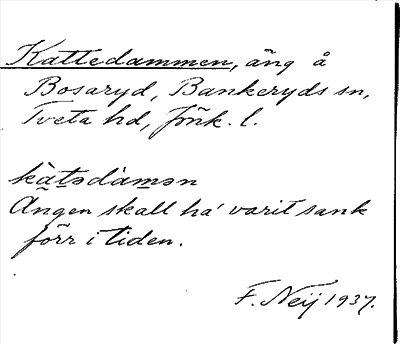 Kattedammen, äng å
Bosaryd, Bankeryds sn,
Tveta hd, Jönk. l.
kàtədàmən
Ängen skall ha' varit sank
förr i tiden.
F. Neij 1937.